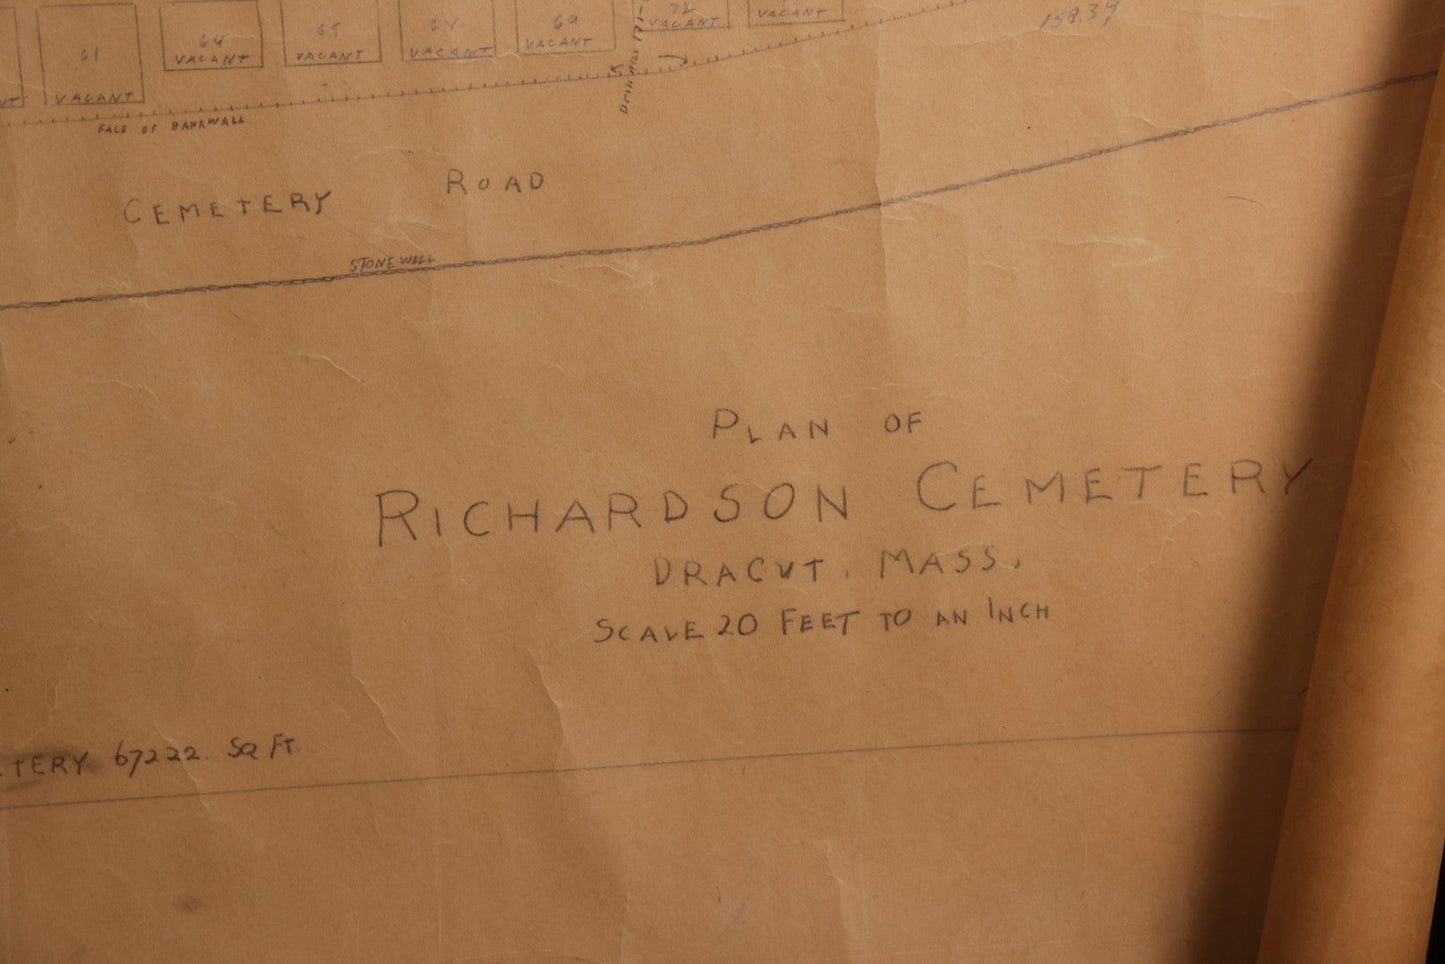 61
VACANT
64
VACANT
65
VACANT
VACANT
69
VACANT
72
VACANT
VACANT
158.39
FACE OF BANKWALL
CEMETERY ROAD
STONE WALL
PLAN OF
RICHARDSON CEMETERY
DRACUT, MASS.
SCALE 20 FEET TO AN INCH
67222 SQ FT.